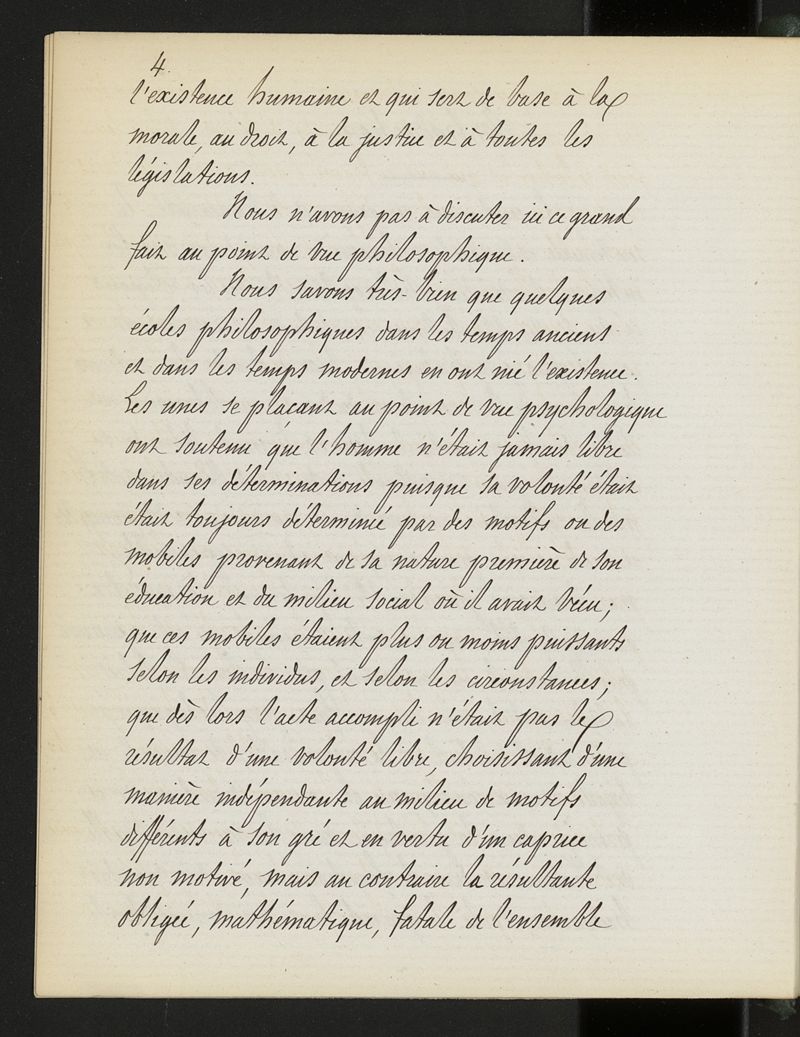 4.
l'existence humaine et qui sert de base à la
morale, au droit, à la justice et à toutes les
législations.
Nous n'avons pas à discuter ici ce grand
fait au point de vue philosophique.
Nous savons très-bien que quelques
écoles philosophiques dans les temps anciens
et dans les temps modernes en ont nié l'existence.
Les unes se plaçant au point de vue psychologique
ont soutenu que l'homme n'était jamais libre
dans ses déterminations puisque sa volonté était
était toujours déterminée par des motifs ou des
mobiles provenant de sa nature première de son
éducation et du milieu social où il avait vécu;
que ces mobiles étaient plus ou moins puissants
selon les individus, et selon les circonstances;
que dès lors l'acte accompli n'était pas le
résultat d'une volonté libre, choisissant d'une
manière indépendante au milieu de motifs
différents à son gré et en vertu d'un caprice
non motivé, mais au contraire la résultante
obligée, mathématique, fatale de l'ensemble